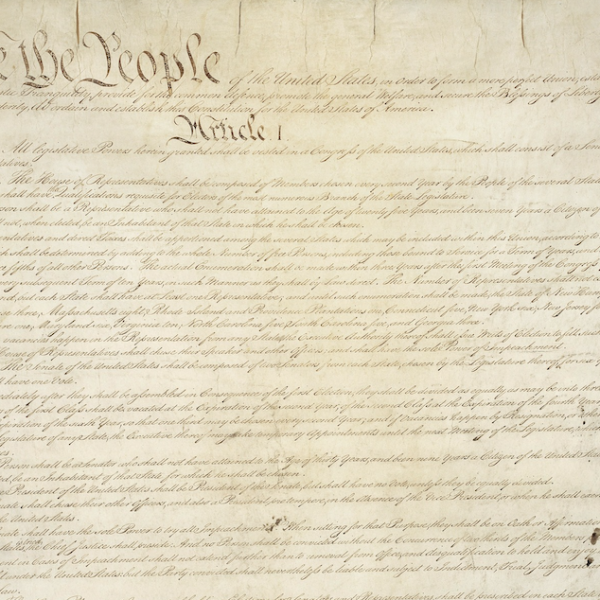 e The People of the United States, in Order to form a more perfect Union, esta
stic Tranquility, provide for the common defence, promote the general Welfare, and secure the Blessings of Liberty
terity, do ordain and establish this Constitution for the United States of America.
Article. I.
All legislative Powers herein granted shall be vested in a Congress of the United States, which shall consist of a Sen
tatives.
The House of Representatives shall be composed of Members chosen every second Year by the People of the several States
shall have Qualifications requisite for Electors of the most numerous Branch of the State Legislature.
erson shall be a Representative who shall not have attained to the Age of twenty five Years, and been seven Years a Citizen of
not, when elected, be an Inhabitant of that State in which he shall be chosen.
entatives and direct Taxes shall be apportioned among the several States which may be included within this Union, according to
ch shall be determined by adding to the whole Number of free Persons, including those bound to Service for a Term of Years, and
fifths of all other Persons. The actual Enumeration shall be made within three Years after the first Meeting of the Congress
ery subsequent Term of ten Years, in such Manner as they shall by Law direct. The Number of Representatives shall not
nd, but each State shall have at Least one Representative; and until such enumeration shall be made, the State of New Ham
se three, Massachusetts eight, Rhode Island and Providence Plantations one, Connecticut five, New York six, New Jersey
re one, Maryland six, Virginia ten, North Carolina five, South Carolina five, and Georgia three.
vacancies happen in the Representation from any State, the Executive Authority thereof shall issue Writs of Election to fill such
House of Representatives shall chuse their Speaker and other Officers; and shall have the sole Power of Impeachment.
The Senate of the United States shall be composed of two Senators from each State, chosen by the Legislature thereof, for six
l have one Vote.
ediately after they shall be assembled in Consequence of the first Election, they shall be divided as equally as may be into three
of the first Class shall be vacated at the Expiration of the second Year, of the second Class at the Expiration of the fourth Year
xpiration of the sixth Year, so that one third may be chosen every second Year; and if Vacancies happen by Resignation, or othe
egislature of any State, the Executive thereof may make temporary Appointments until the next Meeting of the Legislature, which
Person shall be a Senator who shall not have attained to the Age of thirty Years, and been nine Years a Citizen of the United State
ed, be an Inhabitant of that State for which he shall be chosen.
ce President of the United States shall be President of the Senate, but shall have no Vote, unless they be equally divided.
nate shall chuse their other Officers, and also a President pro tempore, in the Absence of the Vice President, or when he shall
he United States.
nate shall have the sole Power to try all Impeachments. When sitting for that Purpose, they shall be on Oath or Affirmation
States, the Chief Justice shall preside: And no Person shall be convicted without the Concurrence of two thirds of the Members
ent in Cases of Impeachment shall not extend further than to removal from Office, and disqualification to hold and enjoy
t under the United States: but the Party convicted shall nevertheless be liable and subject to Indictment, Trial, Judgment
Law.
for Senators and Representatives, shall be prescribed in each State